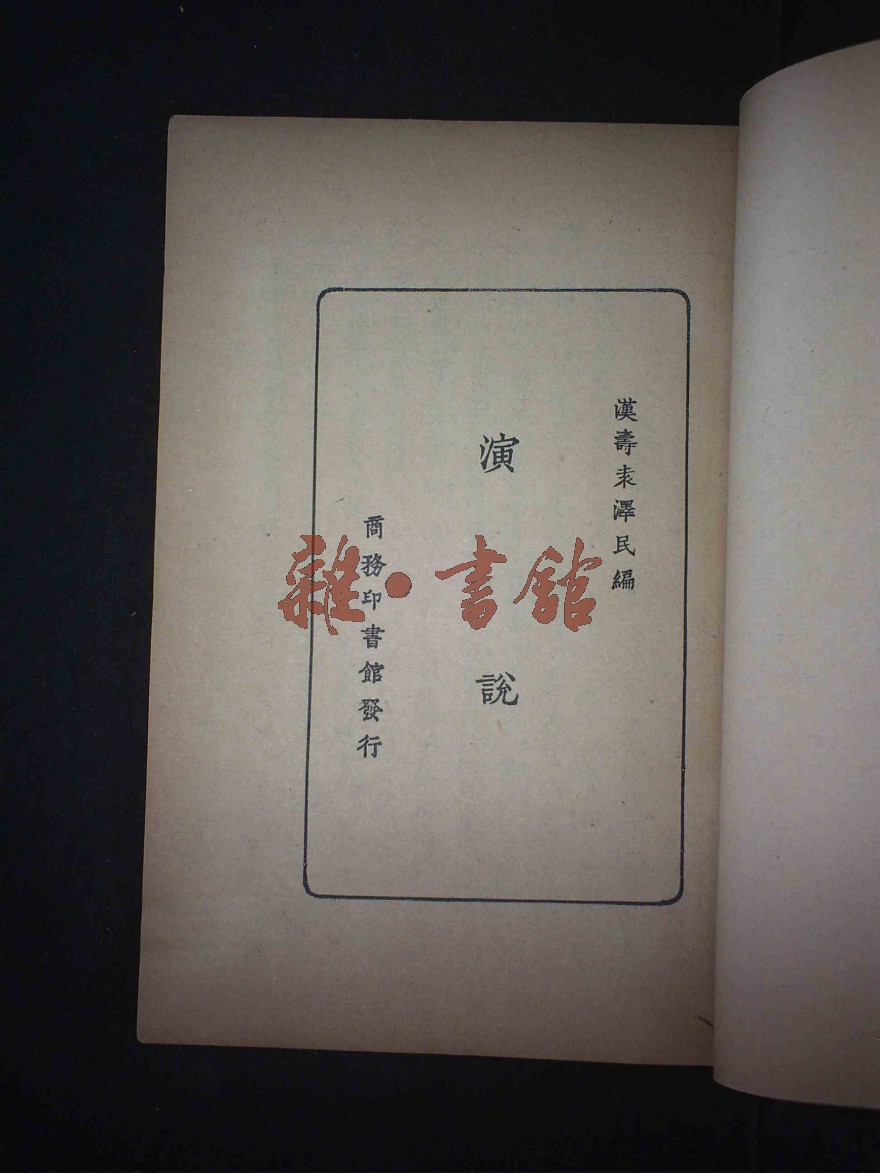 漢壽袁澤民編
演說
商務印書館發行
雜·書館